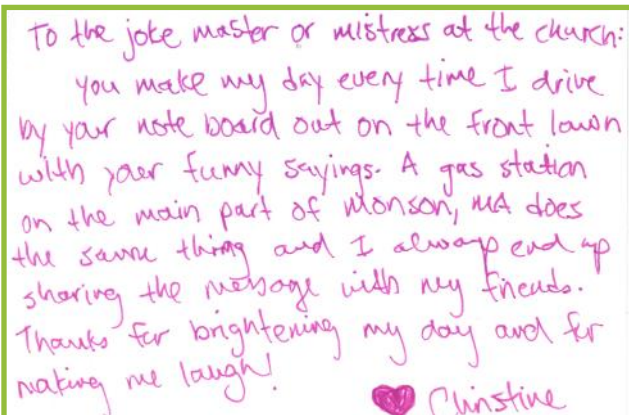 To the joke master or mistress at the church:
you make my day every time I drive
by your note board out on the front lawn
with your funny sayings. A gas station
on the main part of Monson, MA does
the same thing and I always end up
sharing the message with my friends.
Thanks for brightening my day and for
making me laugh!
♥ Christine